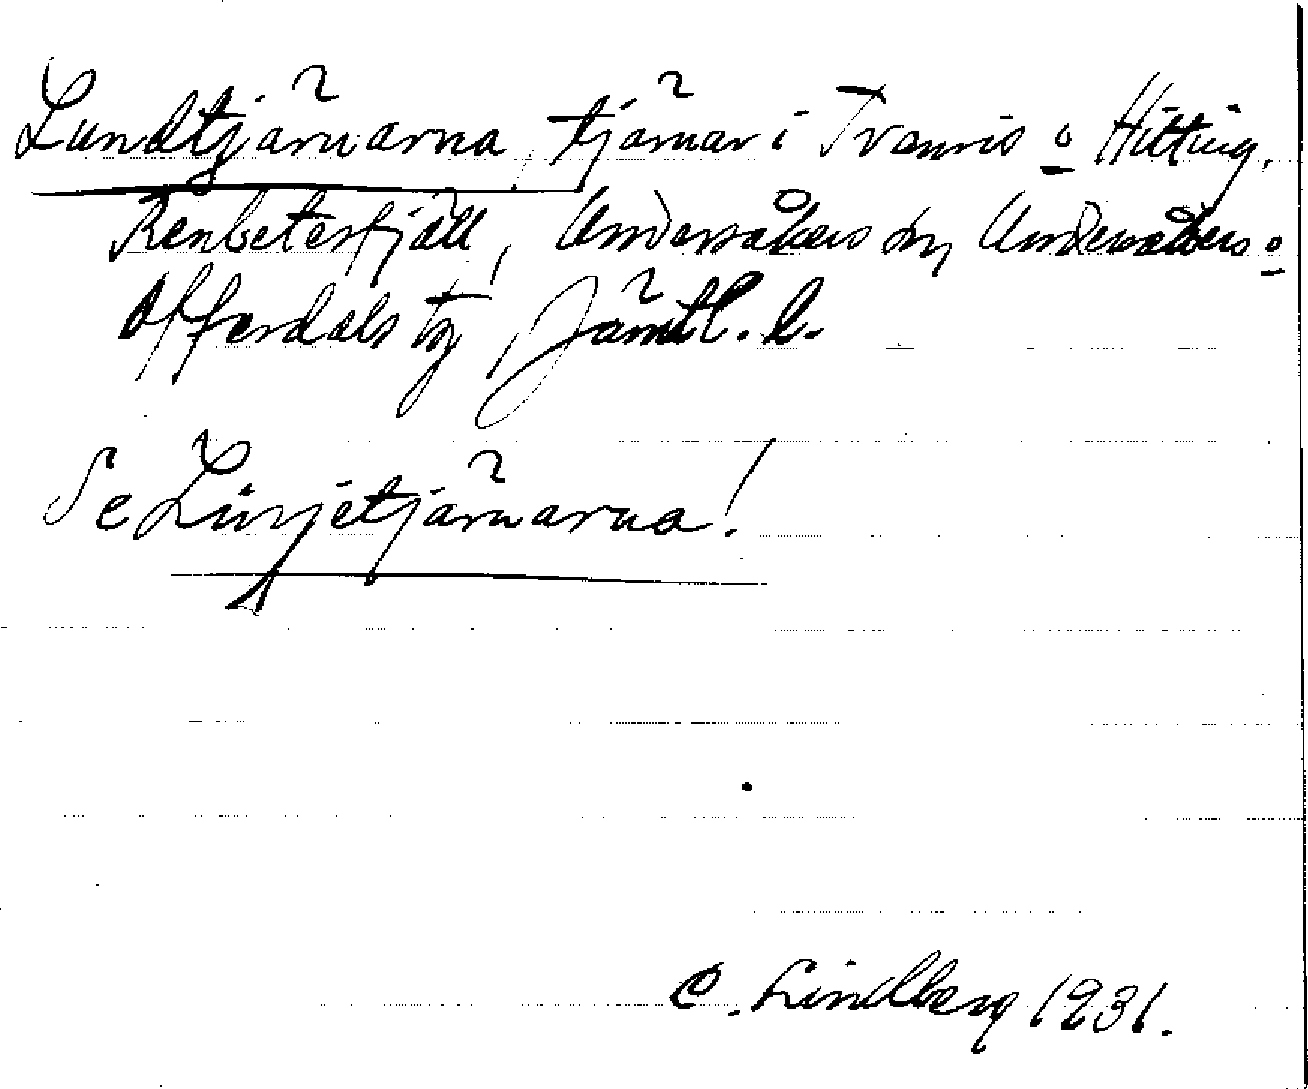 Lundtjärnarna, tjärnar i Tvärnris o Hitting,
Renbetesfjäll, Undersåkers sn, Undersåkers o
Offerdals tg, Jämtl. l.
Se Linjetjärnarna!
C. Lindberg 1931.